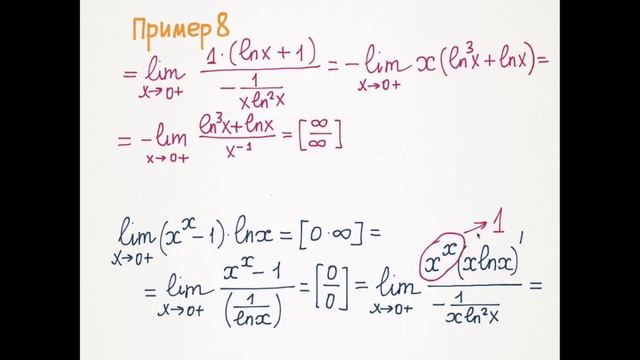 Пример 8
= lim x→0+ 1·(ln x + 1) / (−1/(x ln²x)) = − lim x→0+ x(ln³x + ln x) =
= − lim x→0+ (ln³x + ln x)/x⁻¹ = [∞/∞]
lim x→0+ (xˣ − 1)·ln x = [0·∞] =
= lim x→0+ (xˣ − 1)/(1/ln x) = [0/0] = lim x→0+ xˣ (x ln x)′ / (−1/(x ln²x)) =
→ 1